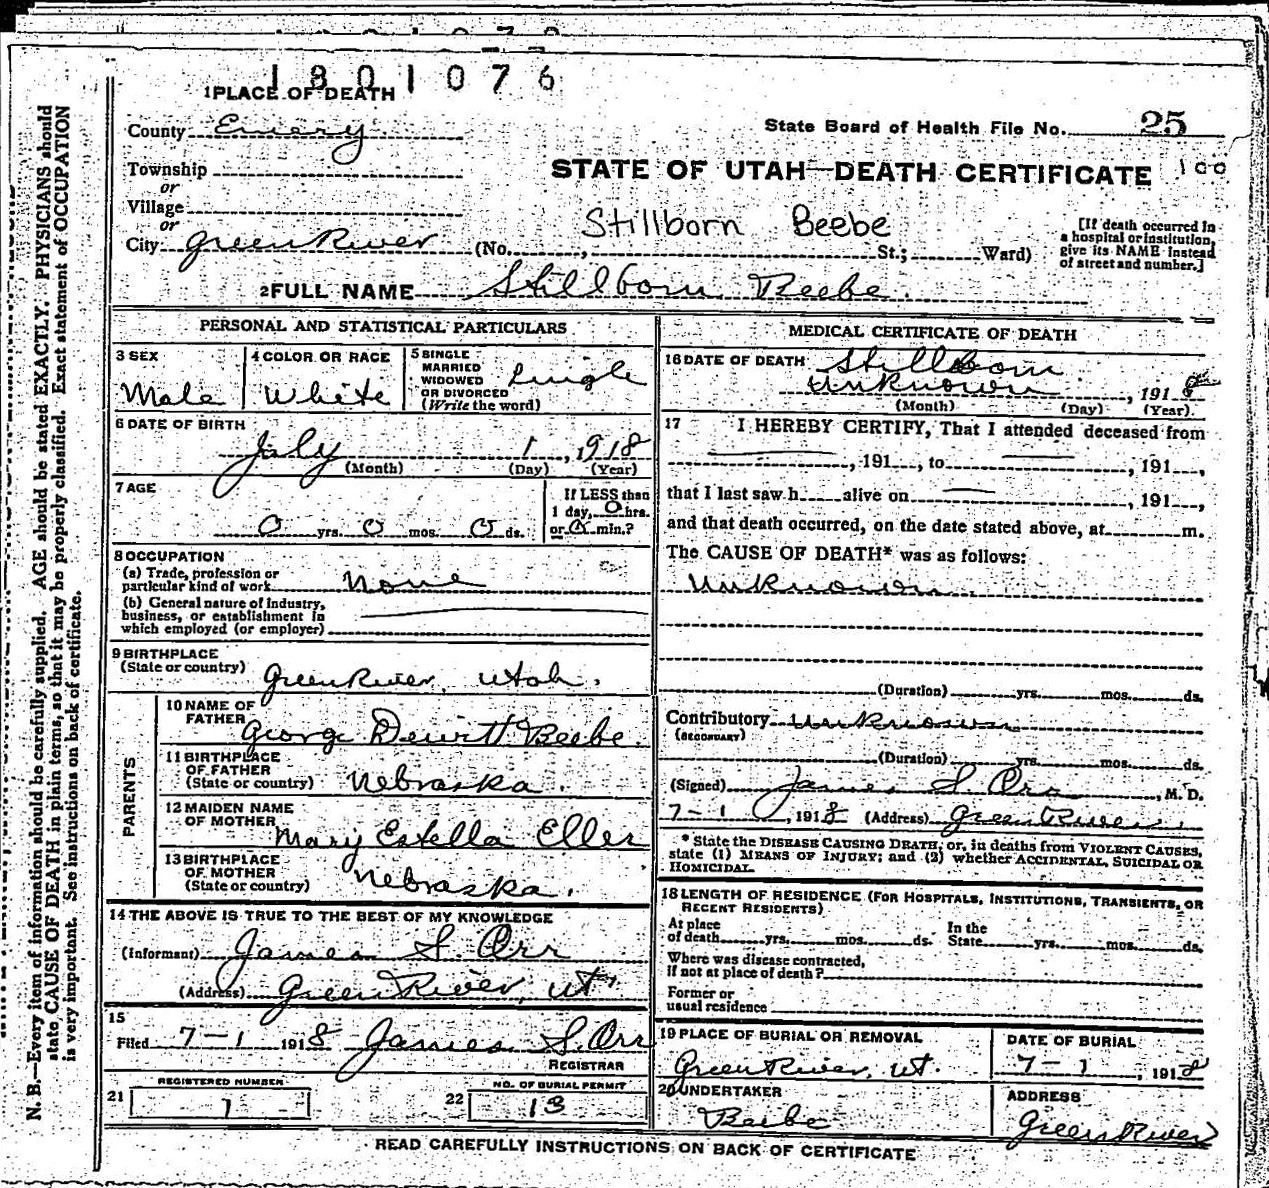 1801076
1 PLACE OF DEATH
County Emery
State Board of Health File No. 25
Township
or
STATE OF UTAH—DEATH CERTIFICATE 100
Village
or
Stillborn Beebe
City Green River (No. , St.; Ward)
[If death occurred in
a hospital or institution,
give its NAME instead
of street and number.]
2 FULL NAME Stillborn Beebe.
PERSONAL AND STATISTICAL PARTICULARS
3 SEX
Male
4 COLOR OR RACE
White
5 SINGLE
MARRIED
WIDOWED
OR DIVORCED
(Write the word)
Single
6 DATE OF BIRTH
July 1, 1918
(Month) (Day) (Year)
7 AGE
0 yrs. 0 mos. 0 ds.
If LESS than
1 day, 0 hrs.
or 0 min.?
8 OCCUPATION
(a) Trade, profession or
particular kind of work None
(b) General nature of industry,
business, or establishment in
which employed (or employer)
9 BIRTHPLACE
(State or country) Green River, Utah.
PARENTS
10 NAME OF
FATHER George Dewitt Beebe.
11 BIRTHPLACE
OF FATHER
(State or country) Nebraska.
12 MAIDEN NAME
OF MOTHER Mary Estella Eller
13 BIRTHPLACE
OF MOTHER
(State or country) Nebraska.
14 THE ABOVE IS TRUE TO THE BEST OF MY KNOWLEDGE
(Informant) James S. Orr
(Address) Green River, Ut.
15
Filed 7-1 1918 James S. Orr
REGISTRAR
REGISTERED NUMBER
21 1
NO. OF BURIAL PERMIT
22 13
MEDICAL CERTIFICATE OF DEATH
16 DATE OF DEATH Stillborn
unknown, 1918
(Month) (Day) (Year)
17 I HEREBY CERTIFY, That I attended deceased from
, 191 , to , 191 ,
that I last saw h alive on , 191 ,
and that death occurred, on the date stated above, at m.
The CAUSE OF DEATH* was as follows:
unknown
(Duration) yrs. mos. ds.
Contributory unknown
(SECONDARY)
(Duration) yrs. mos. ds.
(Signed) James S. Orr, M. D.
7-1, 1918 (Address) Green River.
* State the DISEASE CAUSING DEATH; or, in deaths from VIOLENT CAUSES,
state (1) MEANS OF INJURY; and (2) whether ACCIDENTAL, SUICIDAL OR
HOMICIDAL.
18 LENGTH OF RESIDENCE (FOR HOSPITALS, INSTITUTIONS, TRANSIENTS, OR
RECENT RESIDENTS)
At place
of death yrs. mos. ds.
In the
State yrs. mos. ds.
Where was disease contracted,
if not at place of death?
Former or
usual residence
19 PLACE OF BURIAL OR REMOVAL
Green River, Ut.
DATE OF BURIAL
7-1, 1918
20 UNDERTAKER
Beebe
ADDRESS
Green River
READ CAREFULLY INSTRUCTIONS ON BACK OF CERTIFICATE
N. B.—Every item of information should be carefully supplied. AGE should be stated EXACTLY. PHYSICIANS should
state CAUSE OF DEATH in plain terms, so that it may be properly classified. Exact statement of OCCUPATION
is very important. See instructions on back of certificate.